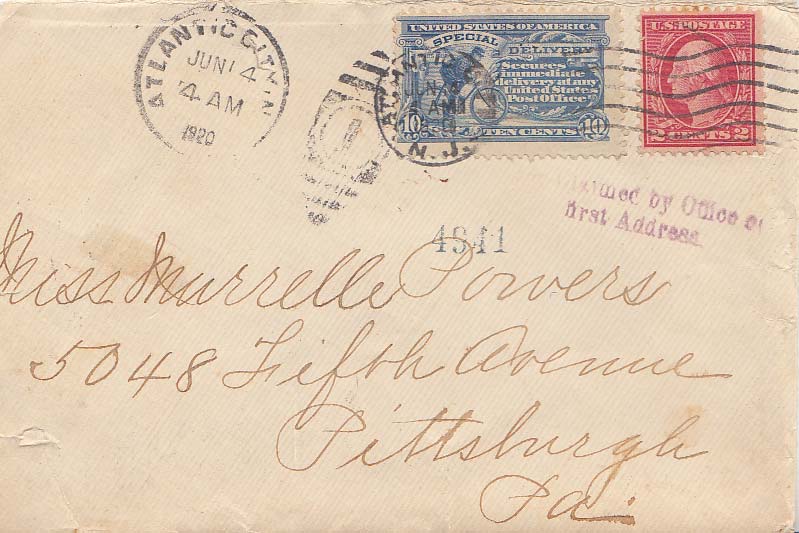 ATLANTIC CITY, N.J.
JUN 14
4 AM
1920
UNITED STATES OF AMERICA
SPECIAL DELIVERY
Secures
immediate
delivery at any
United States
Post Office
10 TEN CENTS 10
N.J.
U.S. POSTAGE
2 CENTS 2
by Office of
First Address
4941
Miss Murrelle Powers
5048 Fifth Avenue
Pittsburgh
Pa.